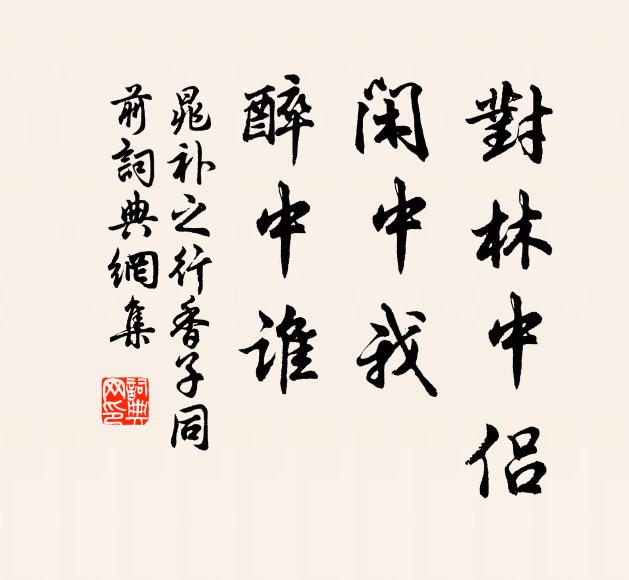 對林中侣
閑中我
醉中谁
晁补之行香子同
前詞典網集
詞典网印